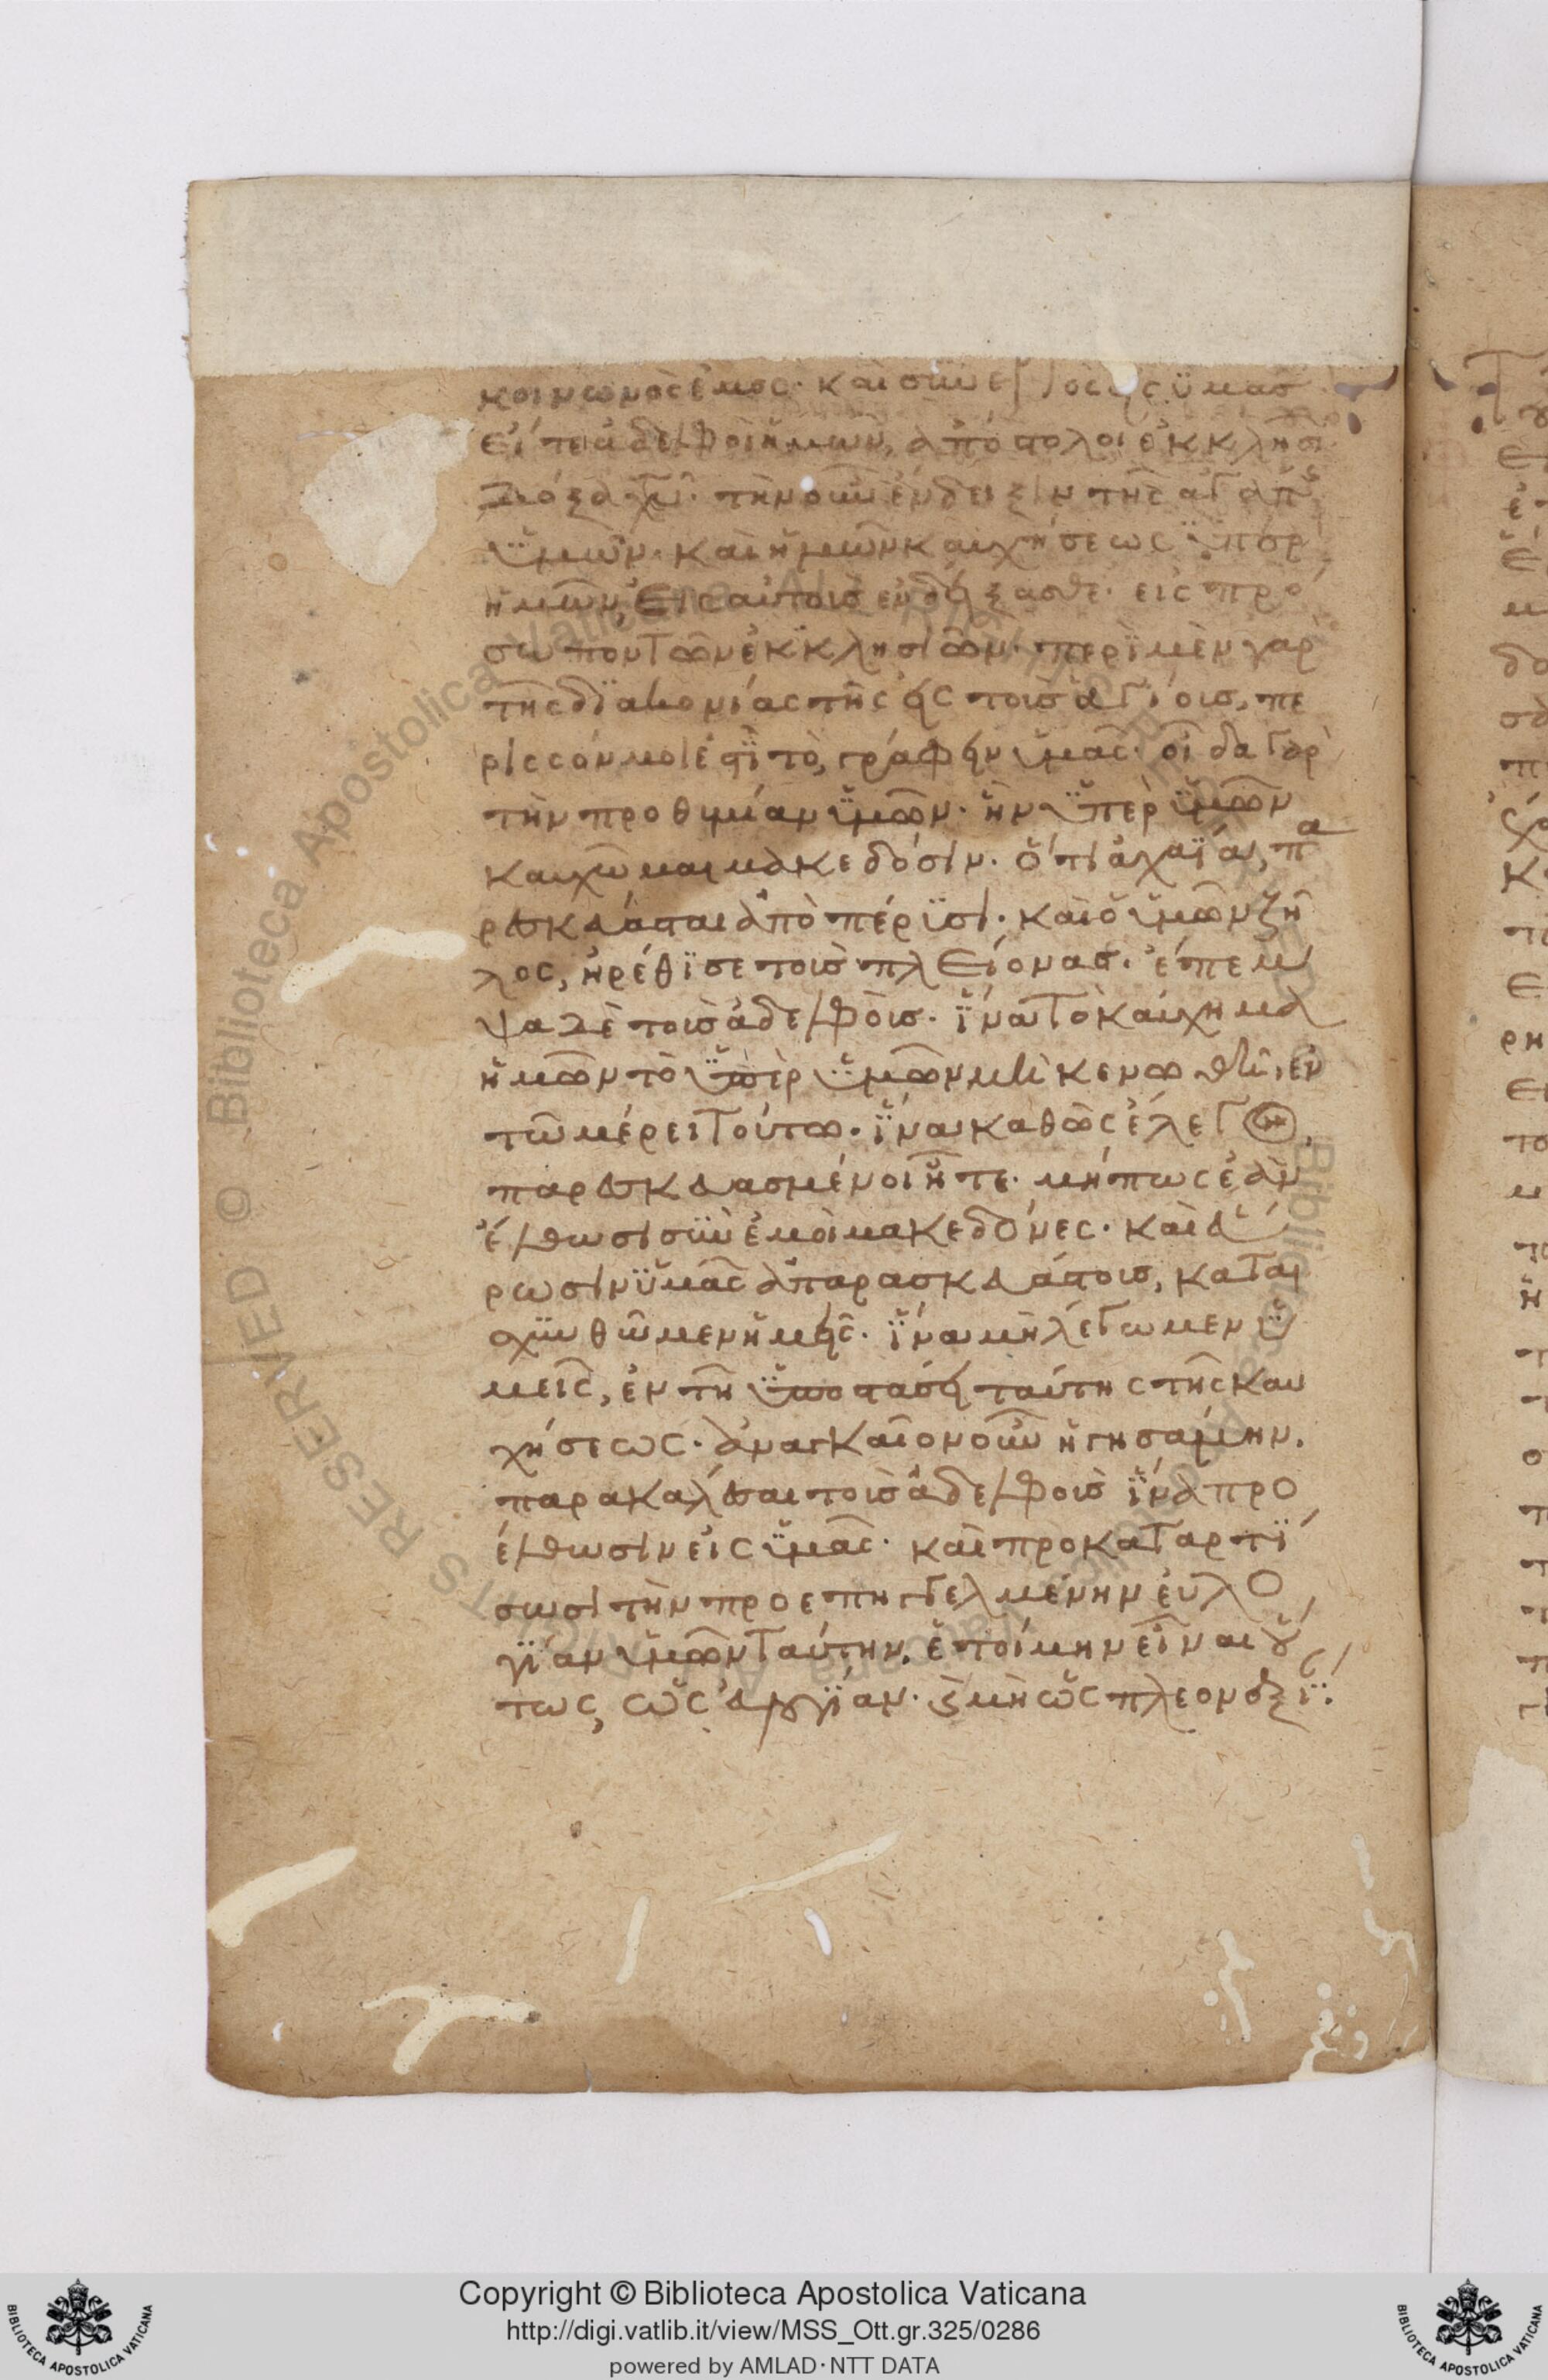 κοινωνὸς ἐμος· καὶ συνεργὸς εἰς ὑμας
εἴτε ἀδελφοὶ ἡμῶν, ἀπόστολοι ἐκκλησι
δόξα χυ· τὴν οὖν ἔνδειξιν τῆς ἀγάπης
ὑμῶν· καὶ ἡμῶν καυχήσεως ὑπὲρ
ἡμῶν, εἰς αὐτοὺς ἐνδείξασθε· εἰς πρό
σωπον τῶν ἐκκλησιῶν· περὶ μὲν γὰρ
τῆς διακονίας τῆς εἰς τοὺς ἁγίους, πε
ρισσόν μοι ἐστὶ τὸ, γράφειν ὑμᾶς· οἶδα γὰρ
τὴν προθυμίαν ὑμῶν· ἣν ὑπὲρ ὑμῶν
καυχῶμαι μακεδόσιν· ὅτι ἀχαΐα, πα
ρεσκεύασται ἀπὸ πέρϊσι· καὶ ὁ ὑμῶν ζῆ
λος, ἠρέθϊσε τοὺς πλείονας· ἔπεμ
ψα δὲ τοὺς ἀδελφοὺς· ἵνα τὸ καύχημα
ἡμῶν τὸ ὑπὲρ ὑμῶν μὴ κενωθῆ, ἐν
τῶ μέρει τούτω· ἵνα καθὼς ἔλεγον,
παρεσκευασμένοι ἦτε· μήπως ἐὰν
ἔλθωσι σὺν ἐμοὶ μακεδόνες· καὶ εὕ
ρωσιν ὑμᾶς ἀπαρασκευάστους, καται
σχυνθῶμεν ἡμεῖς· ἵνα μὴ λέγωμεν ὑ
μεῖς, ἐν τῆ ὑποστάσει ταύτης τῆς καυ
χήσεως· ἀναγκαῖον οὖν ἡγησάμην.
παρακαλέσαι τοὺς ἀδελφοὺς ἵνα προ
έλθωσιν εἰς ὑμᾶς· καὶ προκαταρτί
σωσι τὴν προεπηγγελμένην εὐλο
γίαν ὑμῶν ταύτην, ἑτοίμην εἶναι οὕ
τως, ὡς εὐλογίαν· καὶ μὴ ὡς πλεονεξί·
Copyright © Biblioteca Apostolica Vaticana
http://digi.vatlib.it/view/MSS_Ott.gr.325/0286
powered by AMLAD·NTT DATA